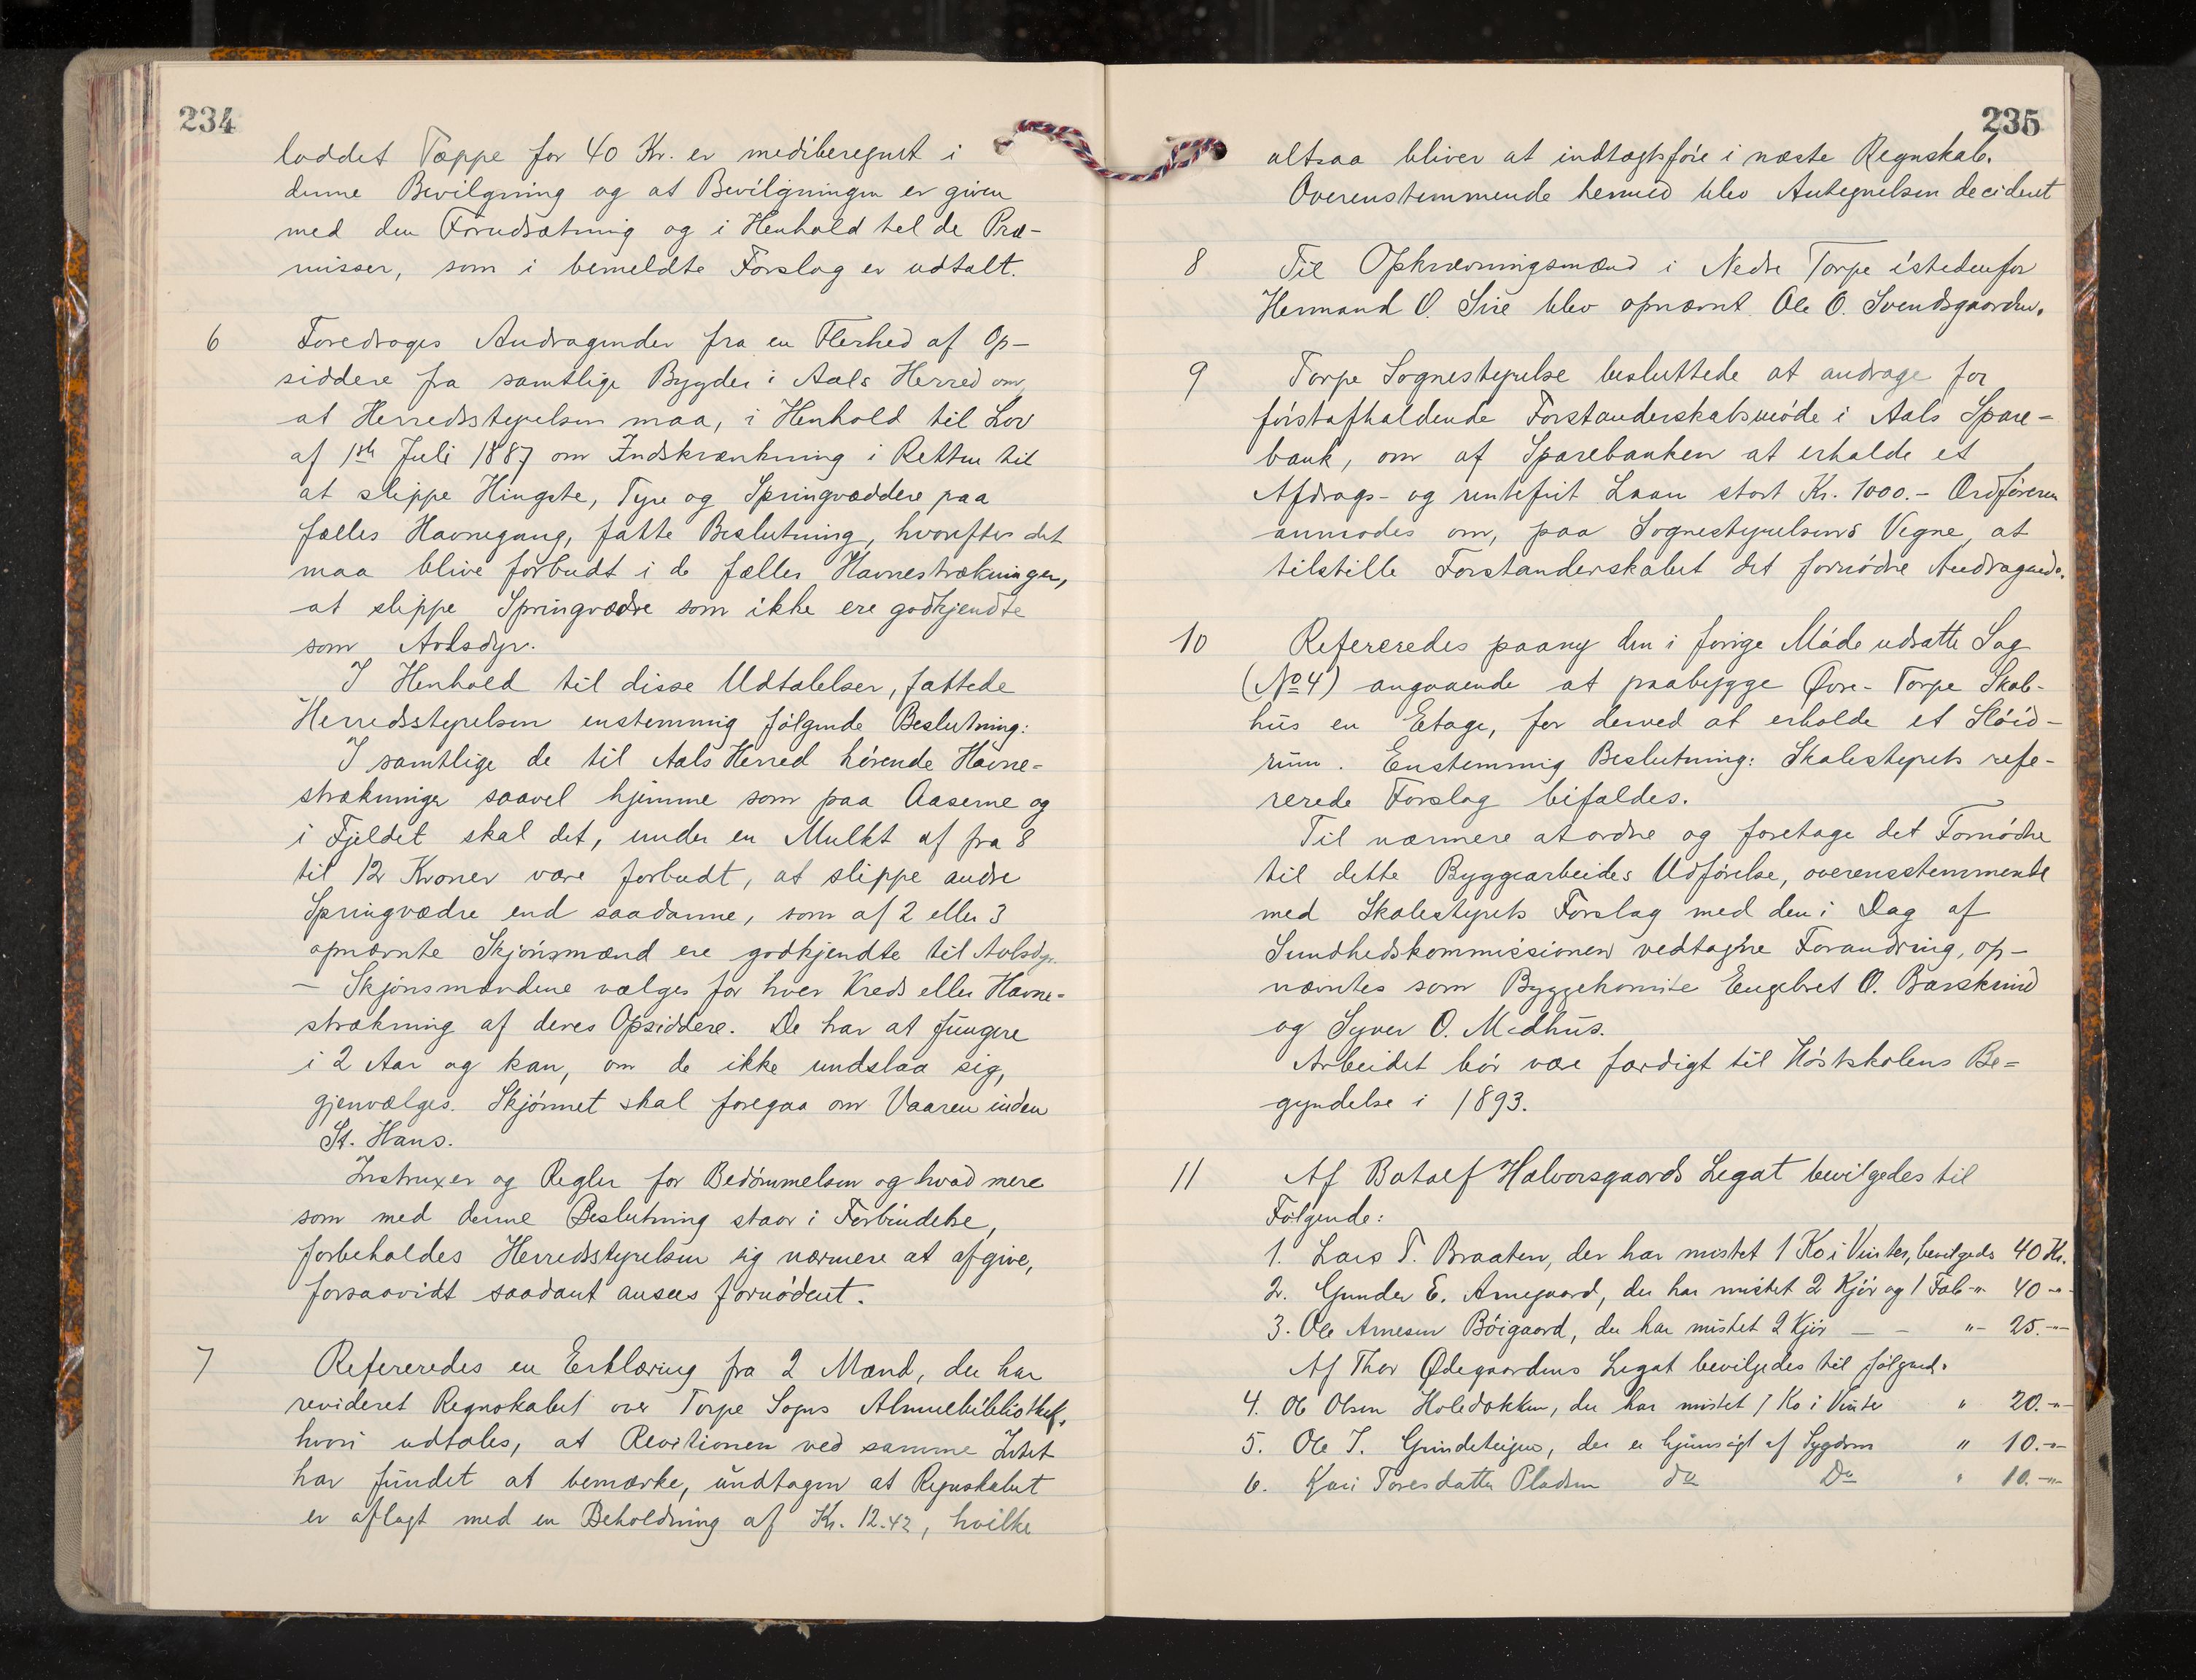 234
loddet Tæppe for 40 Kr. er mediberegnet i
denne Bevilgning og at Bevilgningen er given
med den Forudsætning og i Henhold til de Præ-
misser, som i bemeldte Forslag er udtalt.
6 Foredroges Andragender fra en Flerhed af Op-
siddere fra samtlige Bygder i Aals Herred om
at Herredsstyrelsen maa, i Henhold til Lov
af 1ste Juli 1887 om Indskrænkning i Retten til
at slippe Hingste, Tyre og Springvæddere paa
fælles Havnegang, fatte Beslutning, hvorefter det
maa blive forbudt i de fælles Havnestrækninger,
at slippe Springvædre som ikke ere godkjendte
som Avlsdyr.
I Henhold til disse Udtalelser, fattede
Herredsstyrelsen enstemmig følgende Beslutning:
I samtlige de til Aals Herred hörende Havne-
strækninger saavel hjemme som paa Aaserne og
i Fjeldet skal det, under en Mulkt af fra 8
til 12 Kroner være forbudt, at slippe andre
Springvædre end saadanne, som af 2 eller 3
opnævnte Skjönsmænd ere godkjendte til Avlsdyr.
— Skjönsmændene vælges for hver Kreds eller Havne-
strækning af deres Opsiddere. De har at fungere
i 2 Aar og kan, om de ikke undslaa sig,
gjenvælges. Skjönnet skal foregaa om Vaaren inden
St. Hans.
Instruxer og Regler for Bedömmelsen og hvad mere
som med denne Beslutning staar i Forbindelse,
forbeholdes Herredsstyrelsen sig nærmere at afgive,
forsaavidt saadant ansees fornödent.
7 Refereredes en Erklæring fra 2 Mænd, der har
revideret Regnskabet over Torpe Sogns Almuebibliothek,
hvori udtales, at Revisionen ved samme Intet
har fundet at bemærke, undtagen at Regnskabet
er aflagt med en Beholdning af Kr. 12.42, hvilke
235
altsaa bliver at indtægtsføre i næste Regnskab.
Overenstemmende hermed blev Antegnelsen decideret
8 Til Opkrævningsmænd i Nedre Torpe istedenfor
Hermand O. Sire blev opnævnt Ole O. Svendsgaarden.
9 Torpe Sognestyrelse besluttede at andrage for
förstafholdende Forstanderskabsmöde i Aals Spare-
bank, om af Sparebanken at erholde et
Afdrags- og rentefrit Laan stort Kr. 1000.- Ordföreren
anmodes om, paa Sognestyrelsens Vegne, at
tilstille Forstanderskabet det fornödne Andragende.
10 Refereredes paany den i forige Möde udsatte Sag
(No 4) angaaende at paabygge Øvre-Torpe Skole-
hus en Etage, for derved at erholde et Slöid-
rum. Enstemmig Beslutning: Skolestyrets refe-
rerede Forslag bifaldes.
Til nærmere at ordne og foretage det Fornödne
til dette Byggearbeides Udförelse, overensstemmende
med Skolestyrets Forslag med den i Dag af
Sundhedskommissionen vedtagne Forandring, op-
nævntes som Byggekomite Engebret O. Barskrind
og Syver O. Medhus.
Arbeidet bör være færdigt til Höstskolens Be-
gyndelse i 1893.
11 Af Botolf Halvorsgaards Legat bevilgedes til
Følgende:
1. Lars T. Braaten, der har mistet 1 Ko i Vinter, bevilgeds 40 Kr.
2. Gunder E. Arnegaard, der har mistet 2 Kjör og 1 Fab -"- 40 -"-
3. Ole Arnesen Böigaard, der har mistet 2 Kjör — - "- 25.-"-
Af Thor Ødegaardens Legat bevilgedes til følgende.
4. Ole Olsen Holedokken, der har mistet 1 Ko i Vinter " 20.-"-
5. Ole T. Grindeteigen, der er hjemsögt af Sygdom " 10.-"-
6. Kari Toresdatter Pladsen do Do " 10.-"-